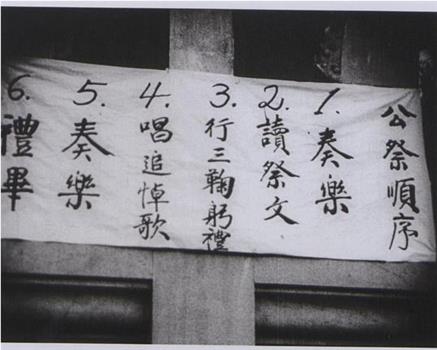 公祭順序
1.奏樂
2.讀祭文
3.行三鞠躬禮
4.唱追悼歌
5.奏樂
6.禮畢